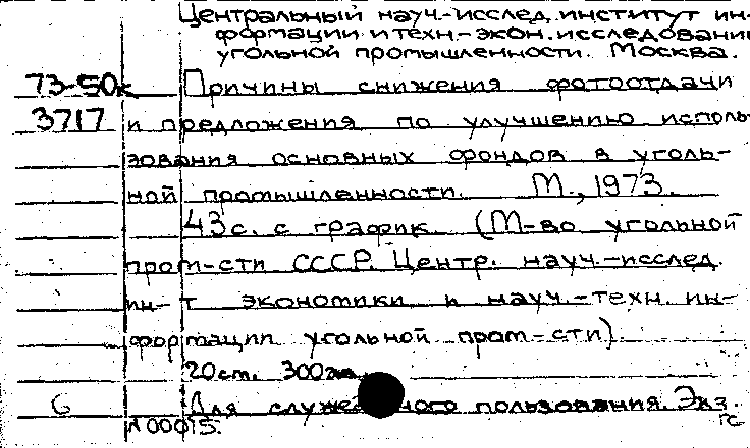 Центральный науч.-исслед. институт ин-
формации и техн.-экон. исследований
угольной промышленности. Москва.
73-50к Причины снижения фотоотдачи
3717 и предложения по улучшению исполь-
зования основных фондов в уголь-
ной промышленности. М., 1973.
43 с. с график. (М-во угольной
пром-сти СССР. Центр. науч.-исслед.
ин-т экономики и науч.-техн. ин-
формации угольной пром-сти)
20 см. 300
6 Для служебного пользования. Экз.
N 00015. ГС